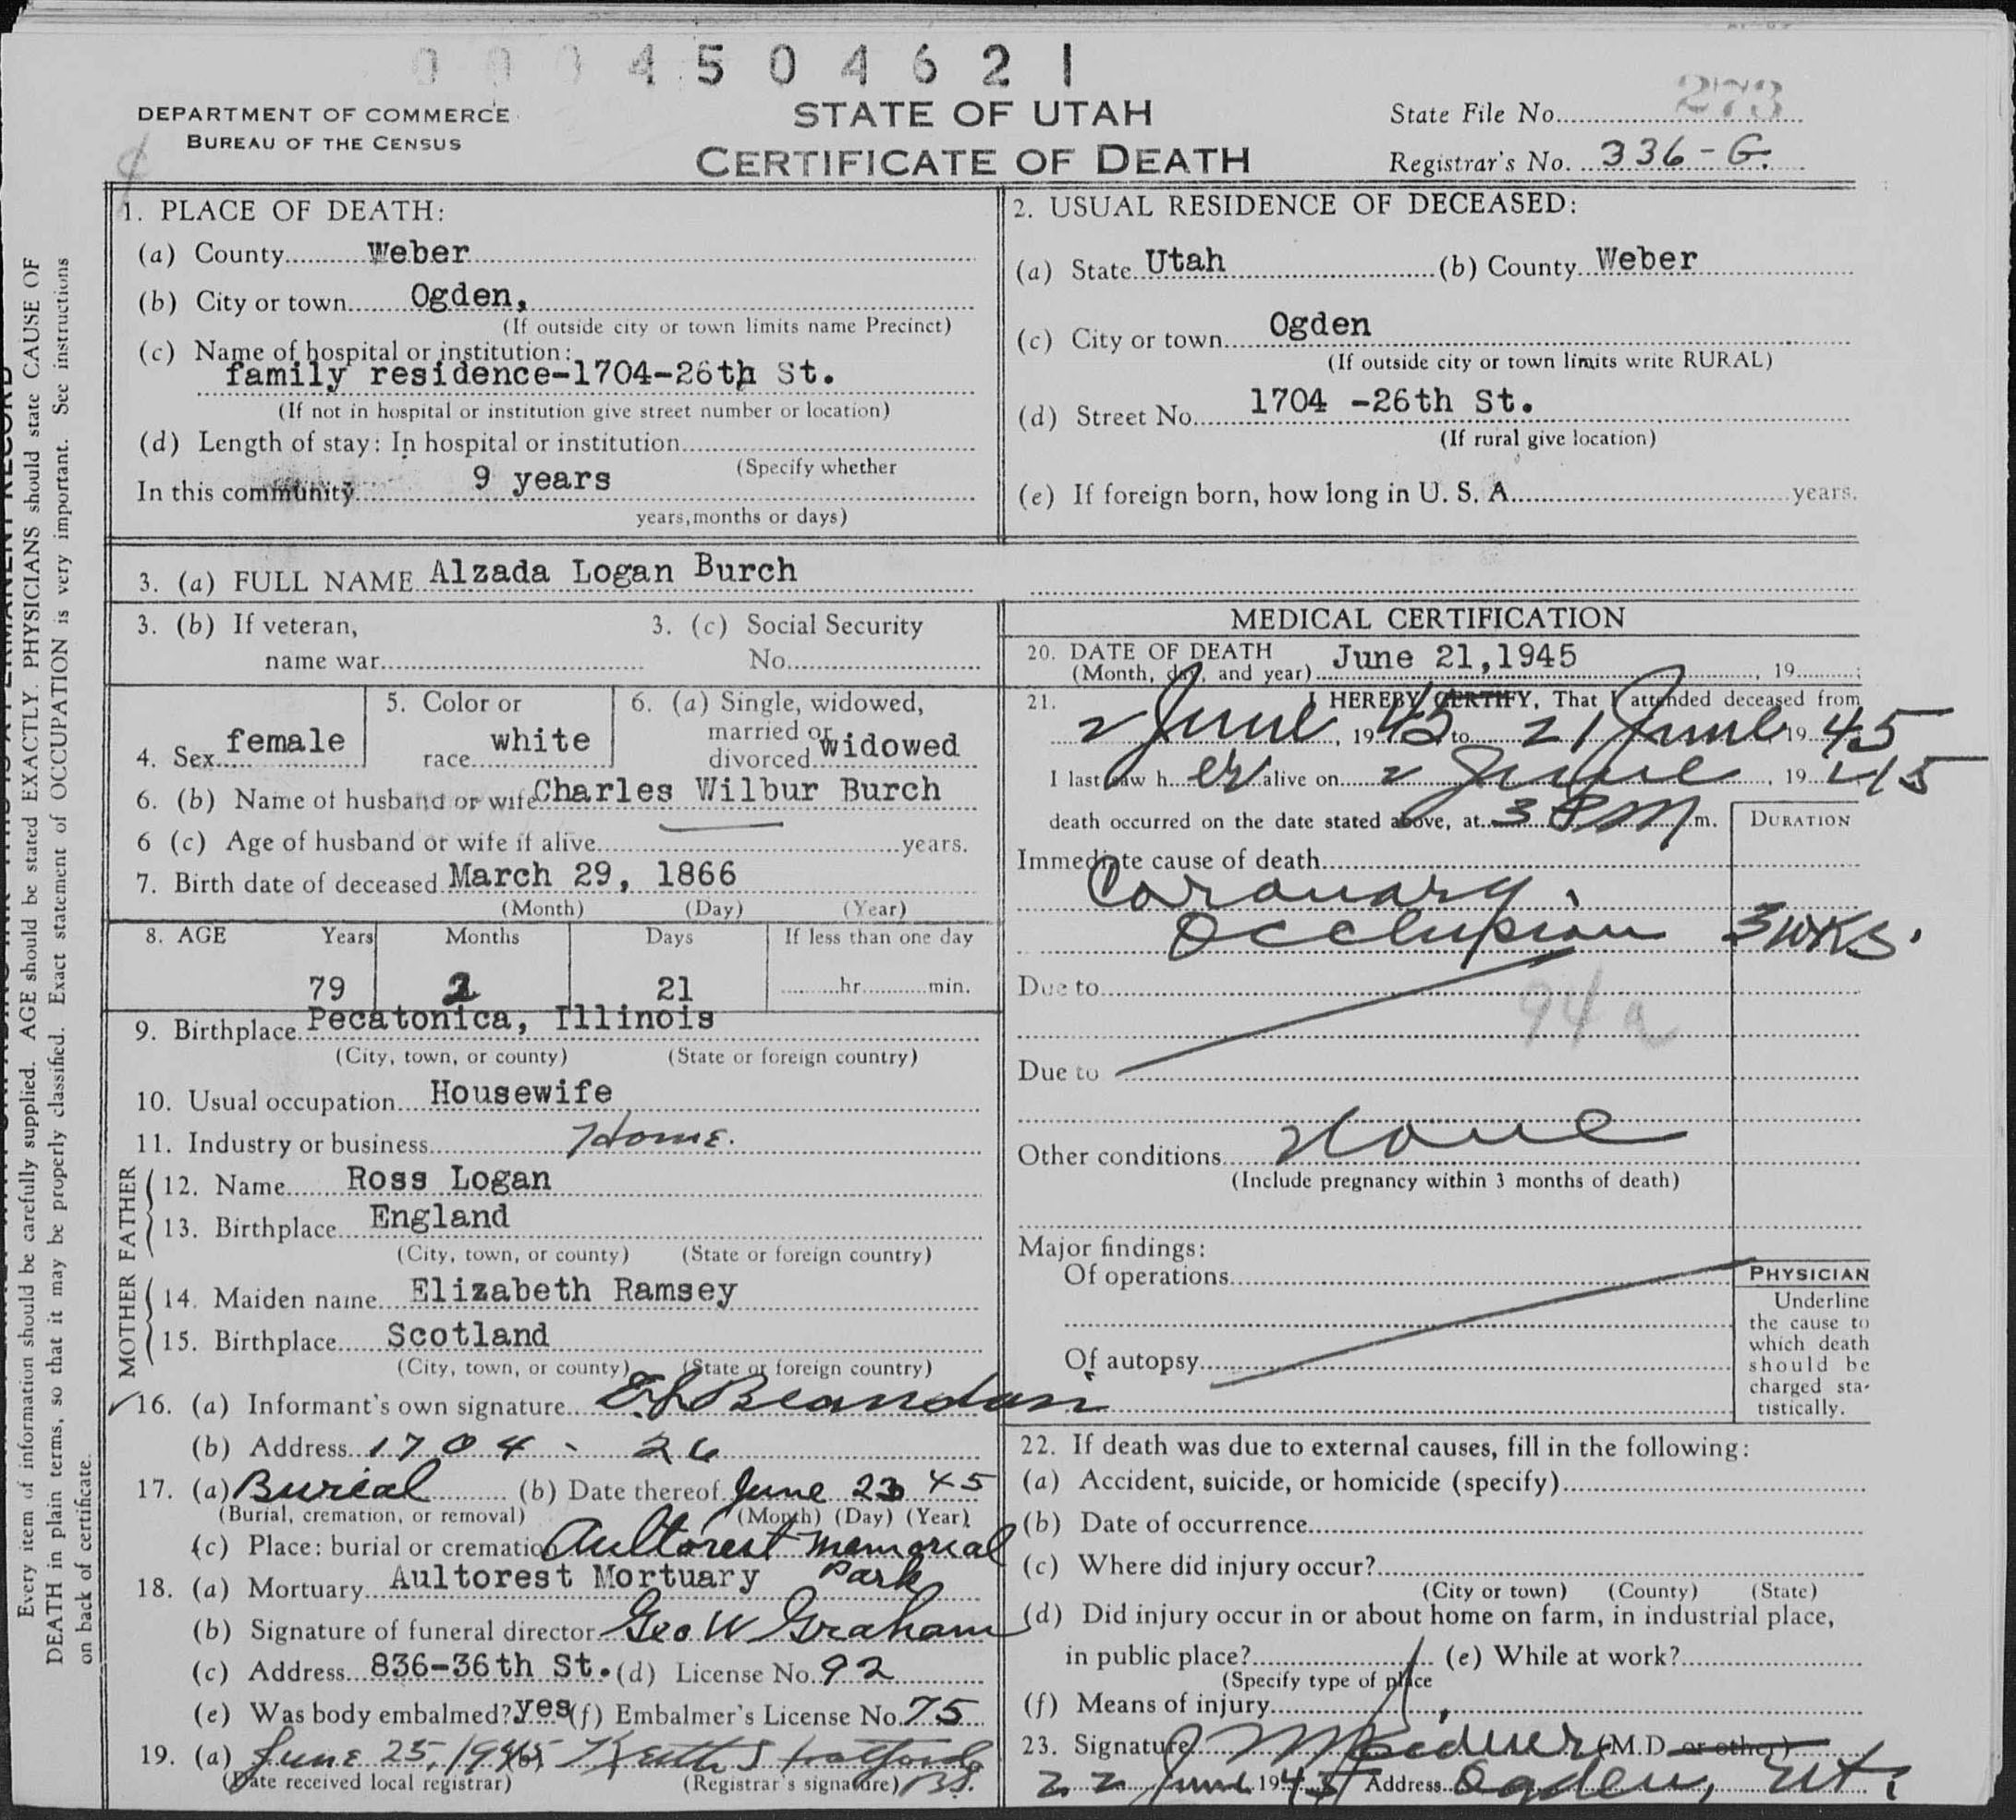 0004504621
DEPARTMENT OF COMMERCE
BUREAU OF THE CENSUS
STATE OF UTAH
CERTIFICATE OF DEATH
State File No. 273
Registrar's No. 336-G.
1. PLACE OF DEATH:
(a) County Weber
(b) City or town Ogden,
(If outside city or town limits name Precinct)
(c) Name of hospital or institution:
family residence-1704-26th St.
(If not in hospital or institution give street number or location)
(d) Length of stay: In hospital or institution
(Specify whether
In this community 9 years
years, months or days)
2. USUAL RESIDENCE OF DECEASED:
(a) State Utah (b) County Weber
(c) City or town Ogden
(If outside city or town limits write RURAL)
(d) Street No. 1704 -26th St.
(If rural give location)
(e) If foreign born, how long in U. S. A. years.
3. (a) FULL NAME Alzada Logan Burch
3. (b) If veteran,
name war
3. (c) Social Security
No.
4. Sex female
5. Color or
race white
6. (a) Single, widowed,
married or
divorced widowed
6. (b) Name of husband or wife Charles Wilbur Burch
6 (c) Age of husband or wife if alive years.
7. Birth date of deceased March 29, 1866
(Month) (Day) (Year)
8. AGE Years Months Days If less than one day
79 2 21 hr. min.
9. Birthplace Pecatonica, Illinois
(City, town, or county) (State or foreign country)
10. Usual occupation Housewife
11. Industry or business Home.
FATHER
12. Name Ross Logan
13. Birthplace England
(City, town, or county) (State or foreign country)
MOTHER
14. Maiden name Elizabeth Ramsey
15. Birthplace Scotland
(City, town, or county) (State or foreign country)
16. (a) Informant's own signature
(b) Address 1704 - 26
17. (a) Burial (b) Date thereof June 23 45
(Burial, cremation, or removal) (Month) (Day) (Year)
(c) Place: burial or cremation Aultorest Memorial
Park
18. (a) Mortuary Aultorest Mortuary
(b) Signature of funeral director Geo W Graham
(c) Address 836-36th St. (d) License No. 92
(e) Was body embalmed? yes (f) Embalmer's License No. 75
19. (a) June 25, 1945
(Date received local registrar) (Registrar's signature)
MEDICAL CERTIFICATION
20. DATE OF DEATH
(Month, day, and year) June 21,1945 , 19 ;
21. I HEREBY CERTIFY, That I attended deceased from
2 June, 1945 to 21 June 19 45
I last saw her alive on 2 June, 19 45
death occurred on the date stated above, at 3 PM m.
DURATION
Immediate cause of death
Coronary
Occlusion 3 WKS.
Due to
94a
Due to
Other conditions None
(Include pregnancy within 3 months of death)
Major findings:
Of operations
Of autopsy
PHYSICIAN
Underline
the cause to
which death
should be
charged sta-
tistically.
22. If death was due to external causes, fill in the following:
(a) Accident, suicide, or homicide (specify)
(b) Date of occurrence
(c) Where did injury occur?
(City or town) (County) (State)
(d) Did injury occur in or about home on farm, in industrial place,
in public place? (e) While at work?
(Specify type of place
(f) Means of injury
23. Signature (M.D. or other)
22 June 1945 Address Ogden, Ut.
Every item of information should be carefully supplied. AGE should be stated EXACTLY. PHYSICIANS should state CAUSE OF
DEATH in plain terms, so that it may be properly classified. Exact statement of OCCUPATION is very important. See instructions
on back of certificate.